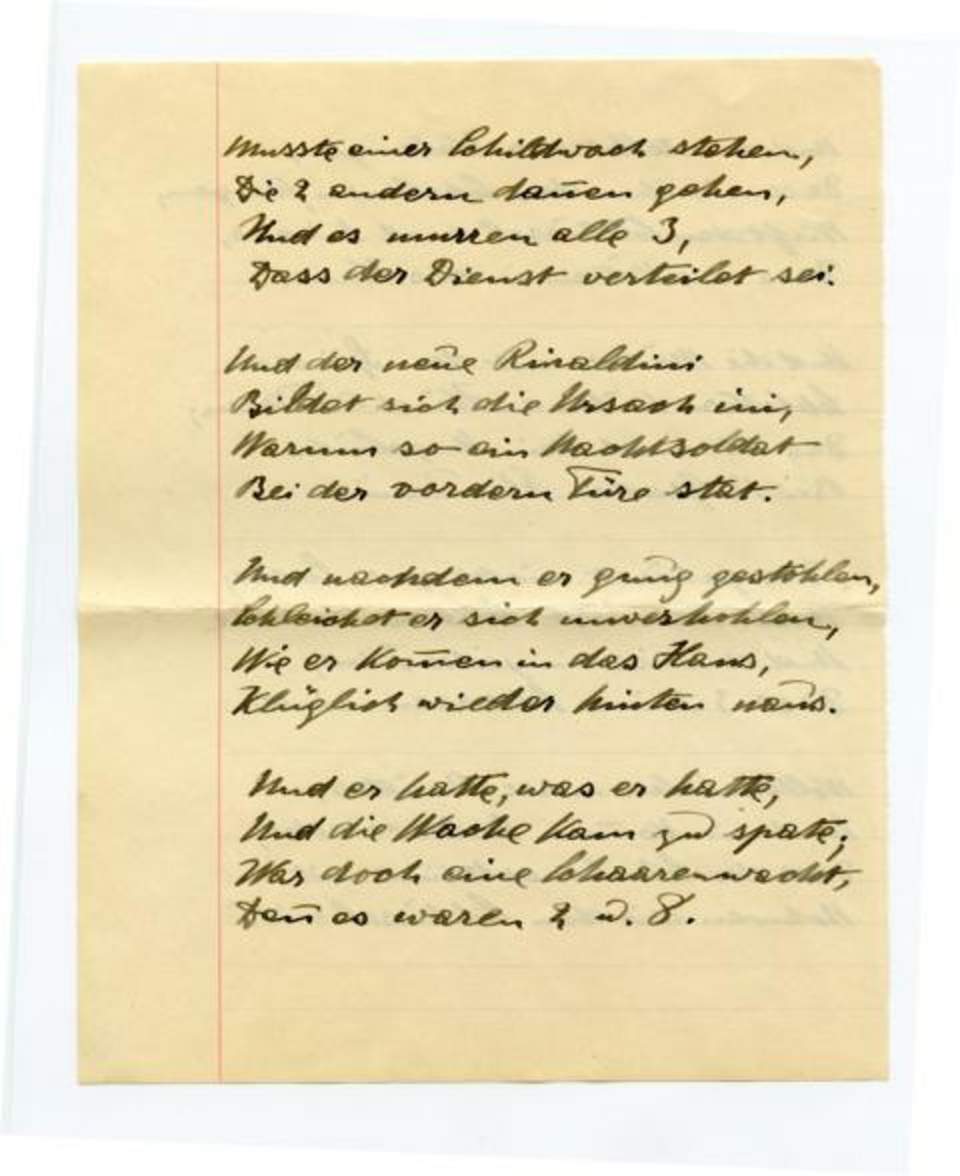 Musste einer Schildwach stehen,
Die 2 andern dañen gehen,
Und es murren alle 3,
Dass der Dienst verteilet sei.
Und der neue Rinaldini
Bildet sich die Ursach ini,
Warum so ein Nachtsoldat
Bei der vordern Türe stat.
Und nachdem er gnug gestohlen,
Schleichet er sich unverhohlen,
Wie er kom̄en in das Haus,
Klüglich wieder hinten naus.
Und er hatte, was er hatte,
Und die Wache kam zu spate;
War doch eine Schaarenwacht,
Deñ es waren 2 u. 8.